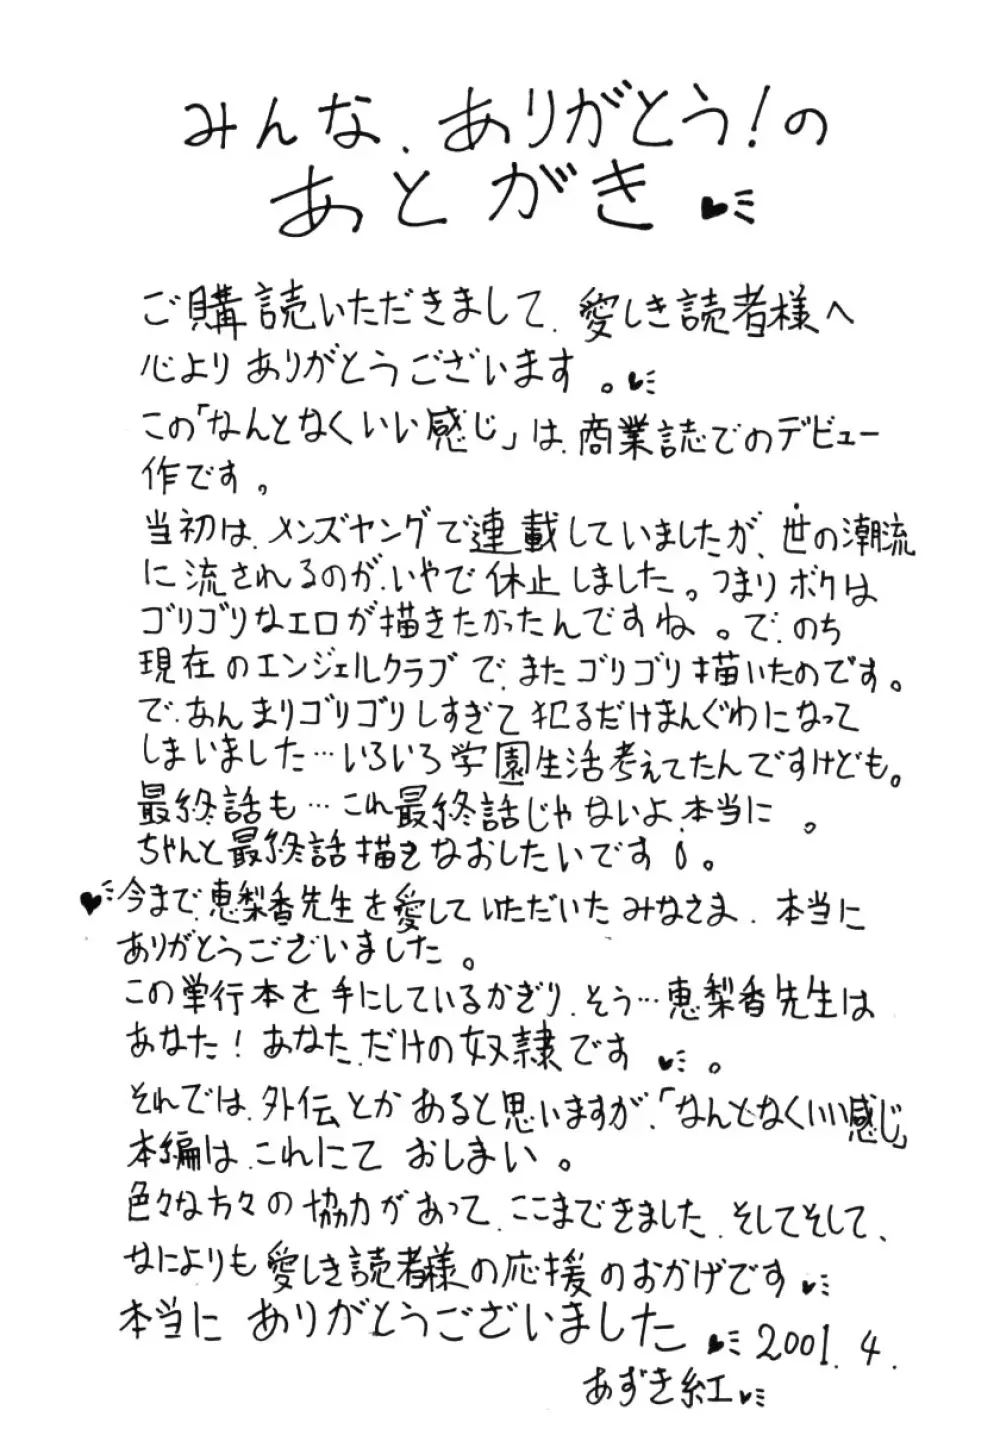 みんな、ありがとう!の
あとがき
ご購読いただきまして、愛しき読者様へ
心よりありがとうございます。
この「なんとなくいい感じ」は、商業誌でのデビュー
作です。
当初は、メンズヤングで連載していましたが、世の潮流
に流されるのが、いやで休止しました。つまりボクは
ゴリゴリなエロが描きたかったんですね。で、のち
現在のエンジェルクラブで、またゴリゴリ描いたのです。
で、あんまりゴリゴリしすぎて犯るだけまんぐわになって
しまいました…いろいろ学園生活考えてたんですけども。
最終話も…これ最終話じゃないよ、本当に。
ちゃんと最終話描きなおしたいです。
今まで、恵梨香先生を愛していただいたみなさま、本当に
ありがとうございました。
この単行本を手にしているかぎり、そう…恵梨香先生は
あなた!あなただけの奴隷です。
それでは、外伝とかあると思いますが、「なんとなくいい感じ」
本編は、これにておしまい。
色々な方々の協力があって、ここまできました、そしてそして、
なによりも愛しき読者様の応援のおかげです
本当にありがとうございました
2001.4.
あずき紅